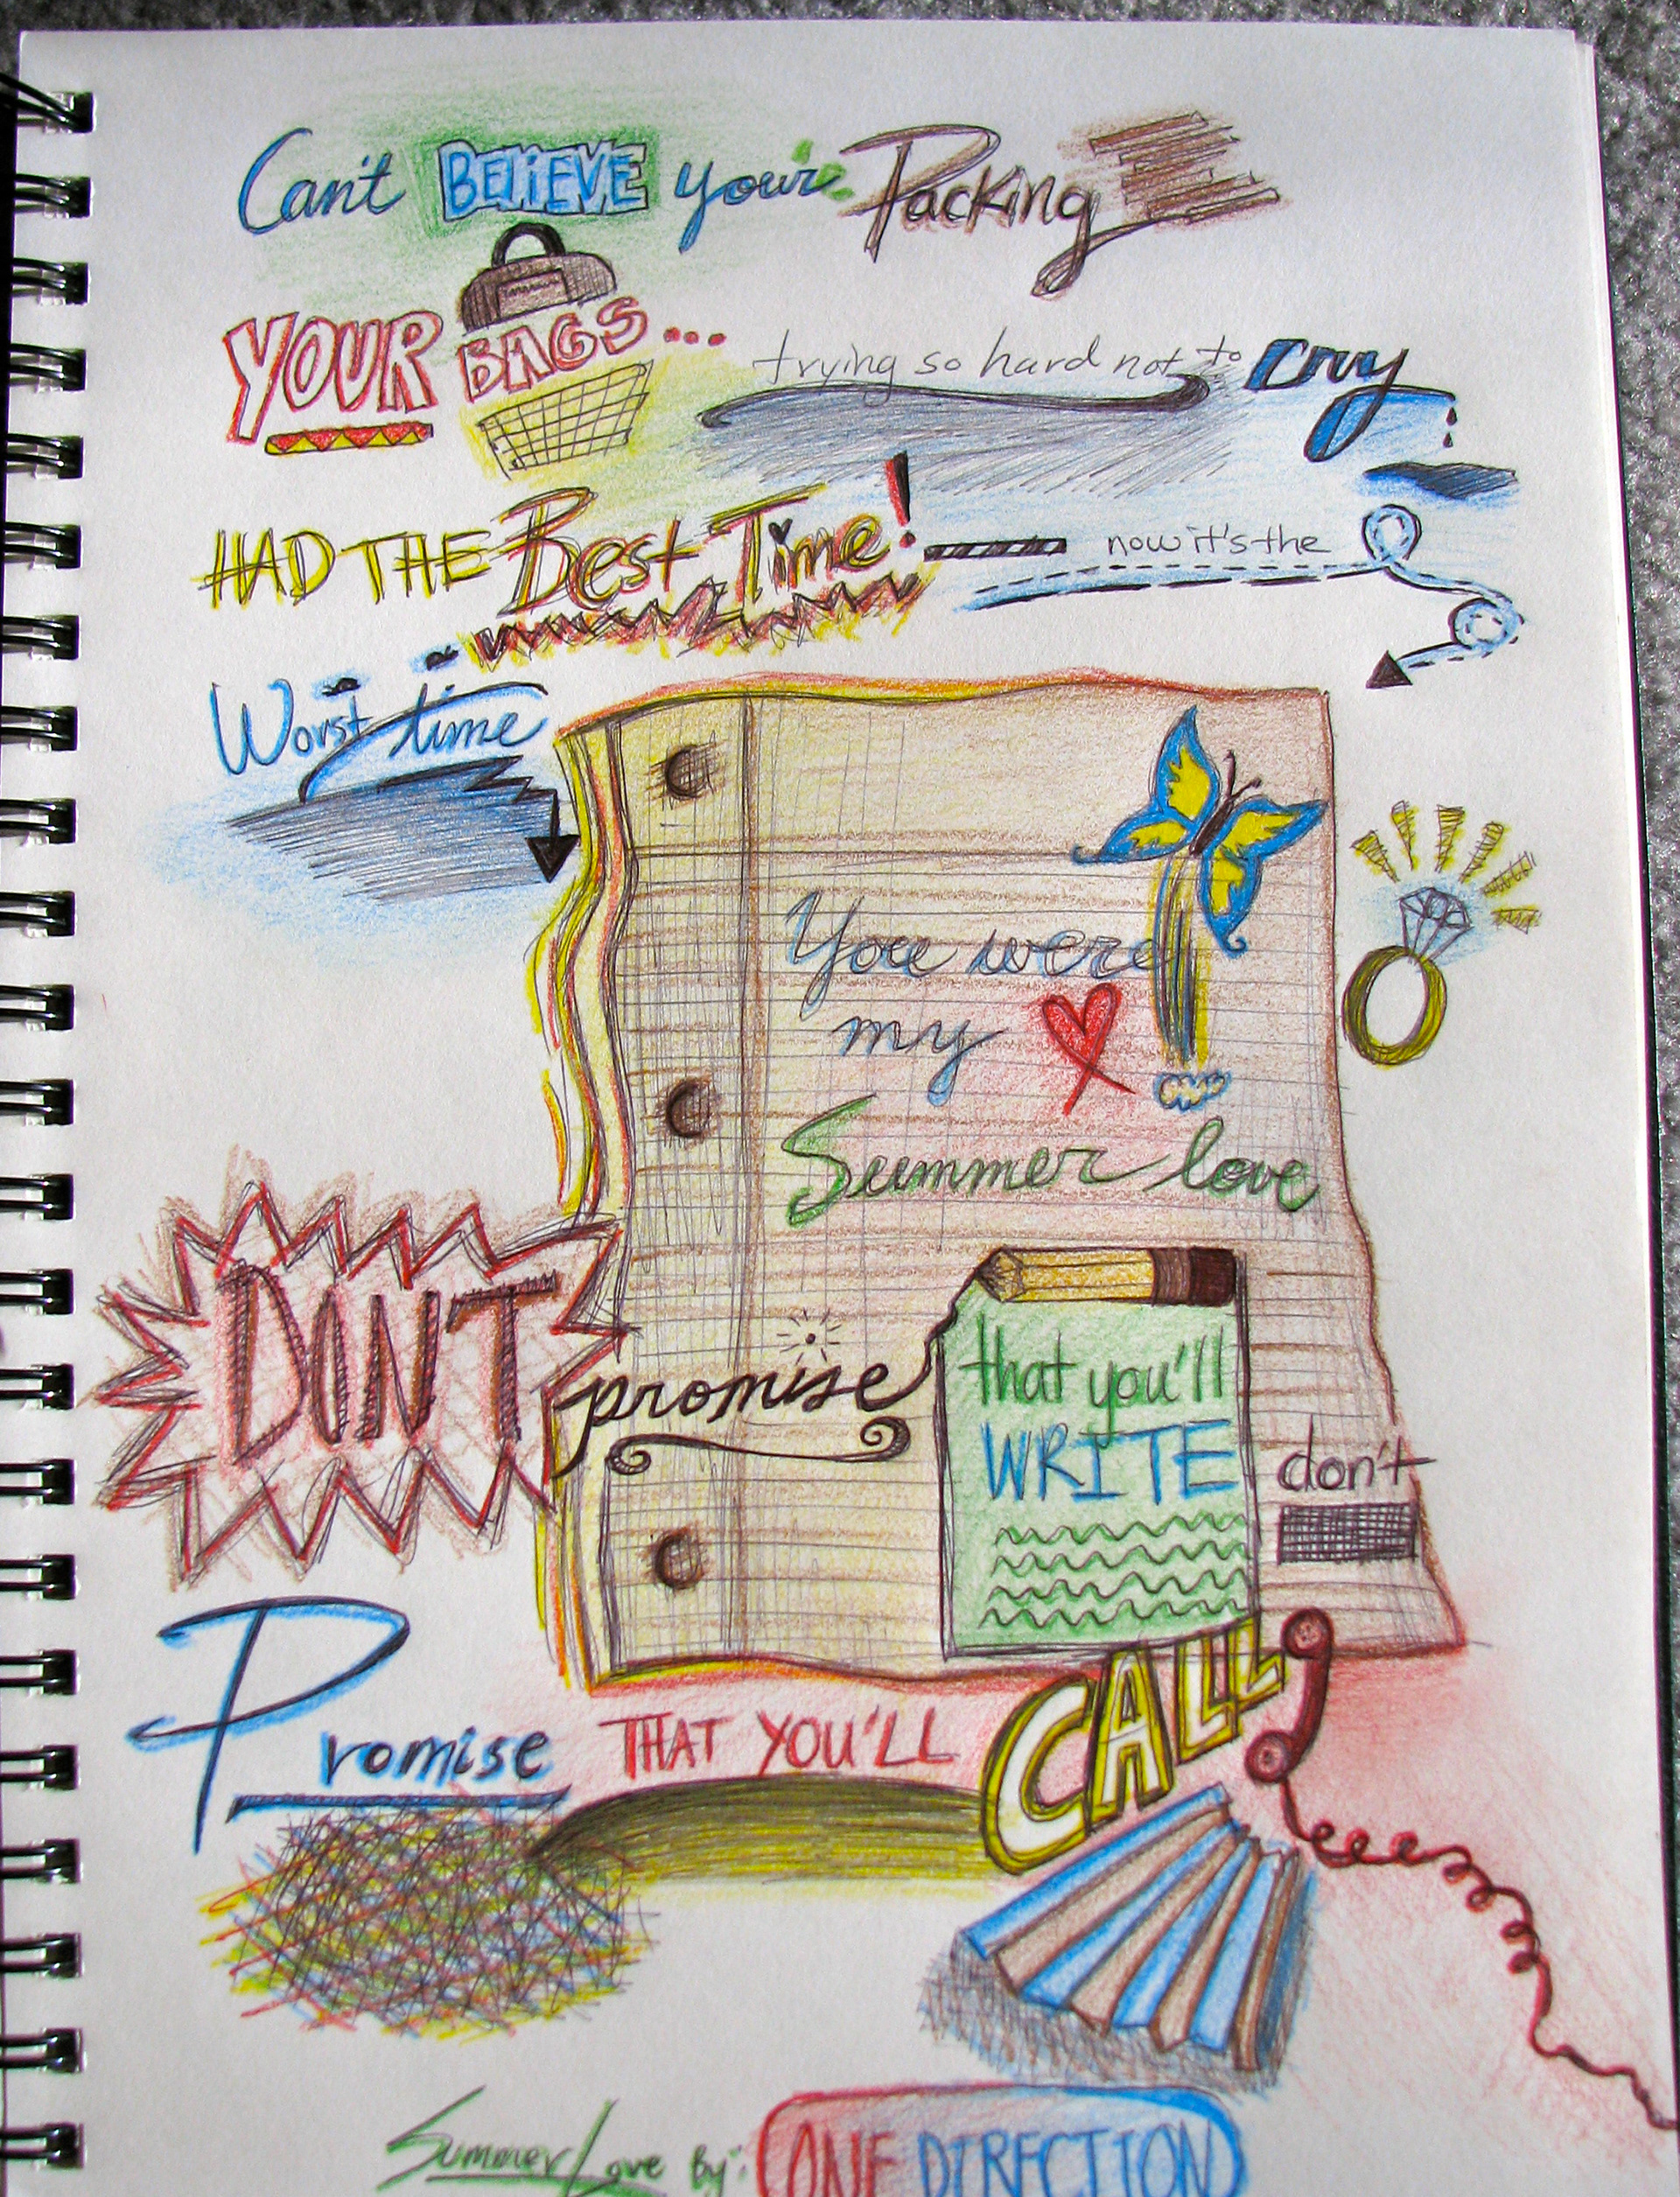 Can't BELIEVE your Packing
YOUR BAGS... trying so hard not to cry
HAD THE Best Time! now it's the
Worst time
You were
my
Summer love
DON'T promise that you'll
WRITE don't
Promise THAT YOU'LL CALL
Summer Love By: ONE DIRECTION